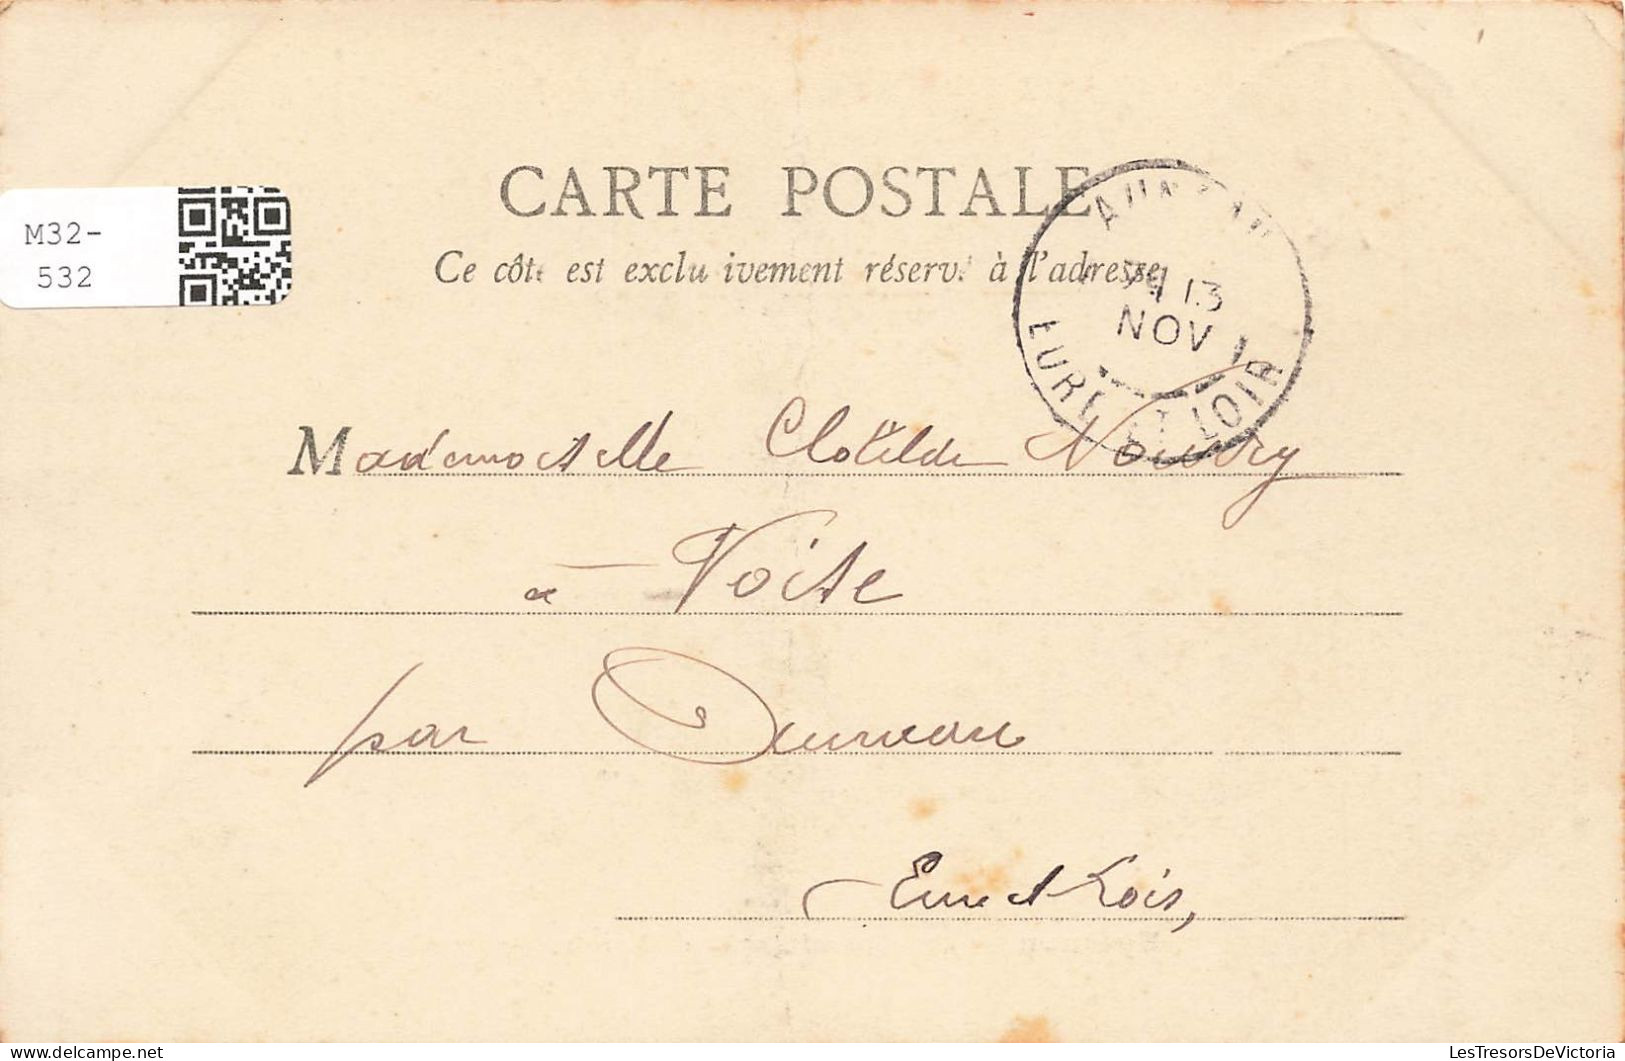 CARTE POSTALE
Ce côté est exclu ivement réserv. à l'adresse
M32-
532
13
NOV
EURE ET LOIR
Mademoiselle Clotilde Nourry
à Voise
par Auneau
Eure et Loir,
LesTresorsDeVictoria